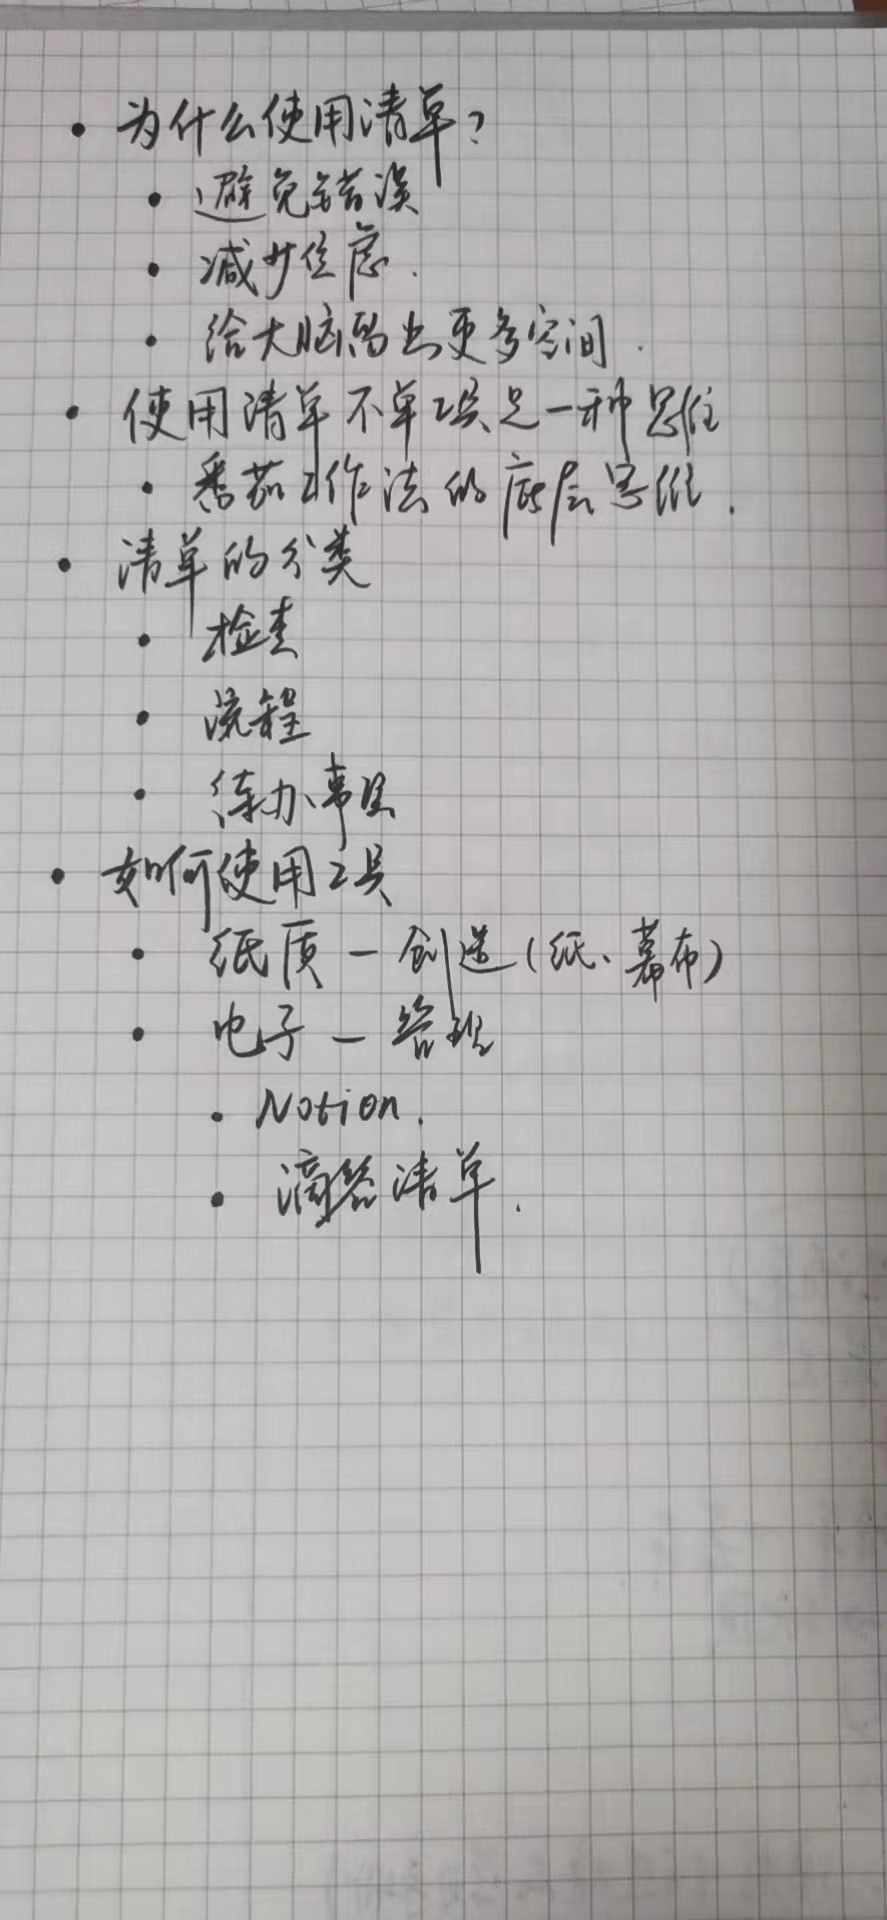 • 为什么使用清单?
• 避免错误
• 减少焦虑.
• 给大脑留出更多空间.
• 使用清单不单工具是一种思维
• 番茄工作法的底层思维.
• 清单的分类
• 检查
• 流程
• 待办事项
• 如何使用工具
• 纸质－创造(纸、幕布)
• 电子－管理
• Notion.
• 滴答清单.